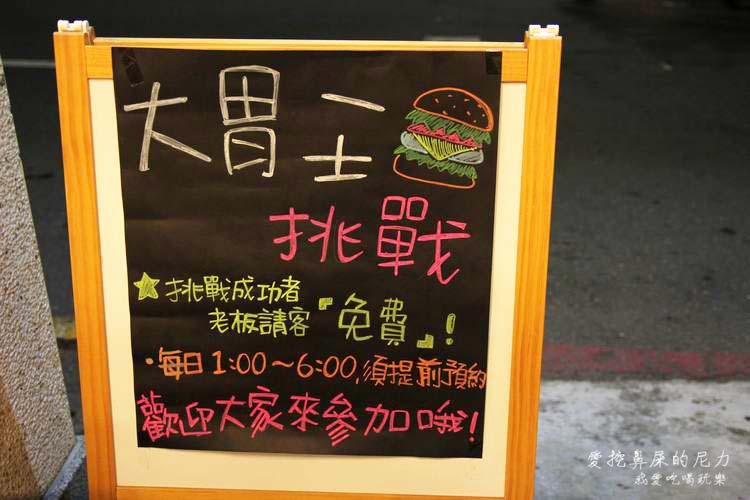 大胃王
挑戰
挑戰成功者
老板請客『免費』!
•每日1:00~6:00,須提前預約
歡迎大家來參加哦!
愛挖鼻屎的尼力
我愛吃喝玩樂